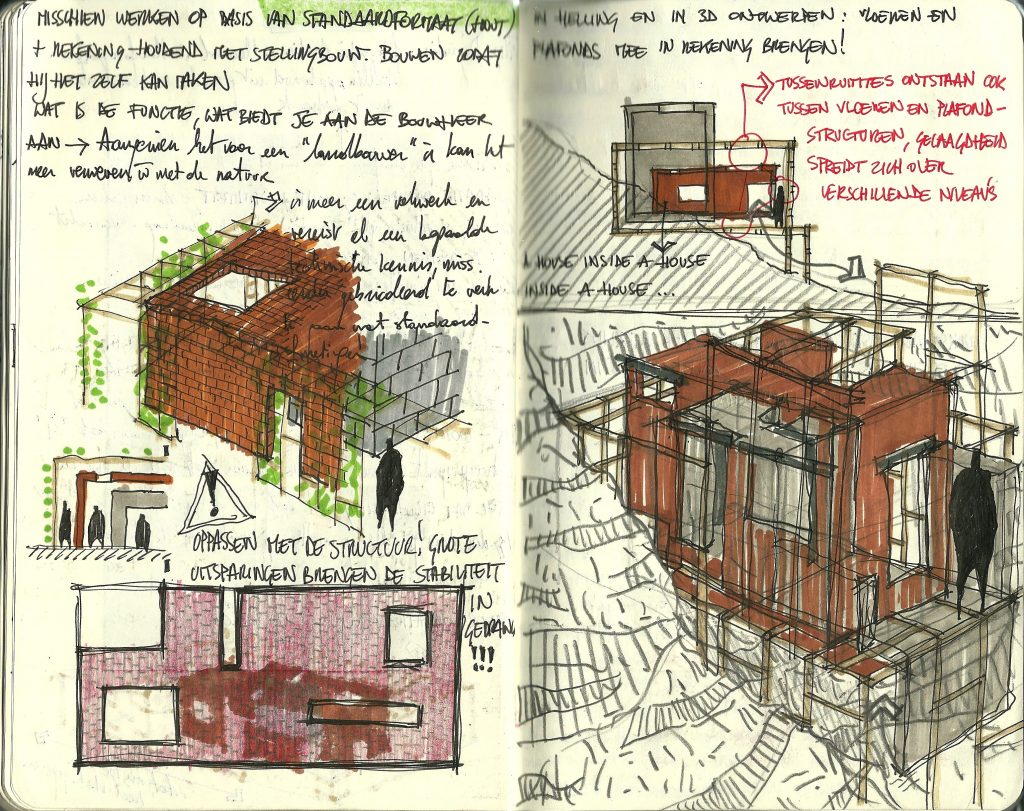 MISSCHIEN WERKEN OP BASIS VAN STANDAARDFORMAAT (HOUT)
+ REKENING HOUDEND MET STELLINGBOUW. BOUWEN ZODAT
HIJ HET ZELF KAN MAKEN
WAT IS DE FUNCTIE, WAT BIEDT JE AAN DE BOUWHEER
AAN → Aangezien het voor een "landbouwer" is kan het
meer verweven met de natuur
is meer een vakwerk en
vereist al een bepaalde
technische kennis, miss.
te werk
met standaard-
OPPASSEN MET DE STRUCTUUR! GROTE
UITSPARINGEN BRENGEN DE STABILITEIT
IN
GEDRANG
!!!
IN HELLING EN IN 3D ONTWERPEN: VLOEREN EN
PLAFONDS MEE IN REKENING BRENGEN!
TUSSENRUIMTES ONTSTAAN OOK
TUSSEN VLOEREN EN PLAFOND-
STRUCTUREN, GELAAGDHEID
SPREIDT ZICH OVER
VERSCHILLENDE NIVEAU'S
A HOUSE INSIDE A HOUSE
INSIDE A HOUSE ...